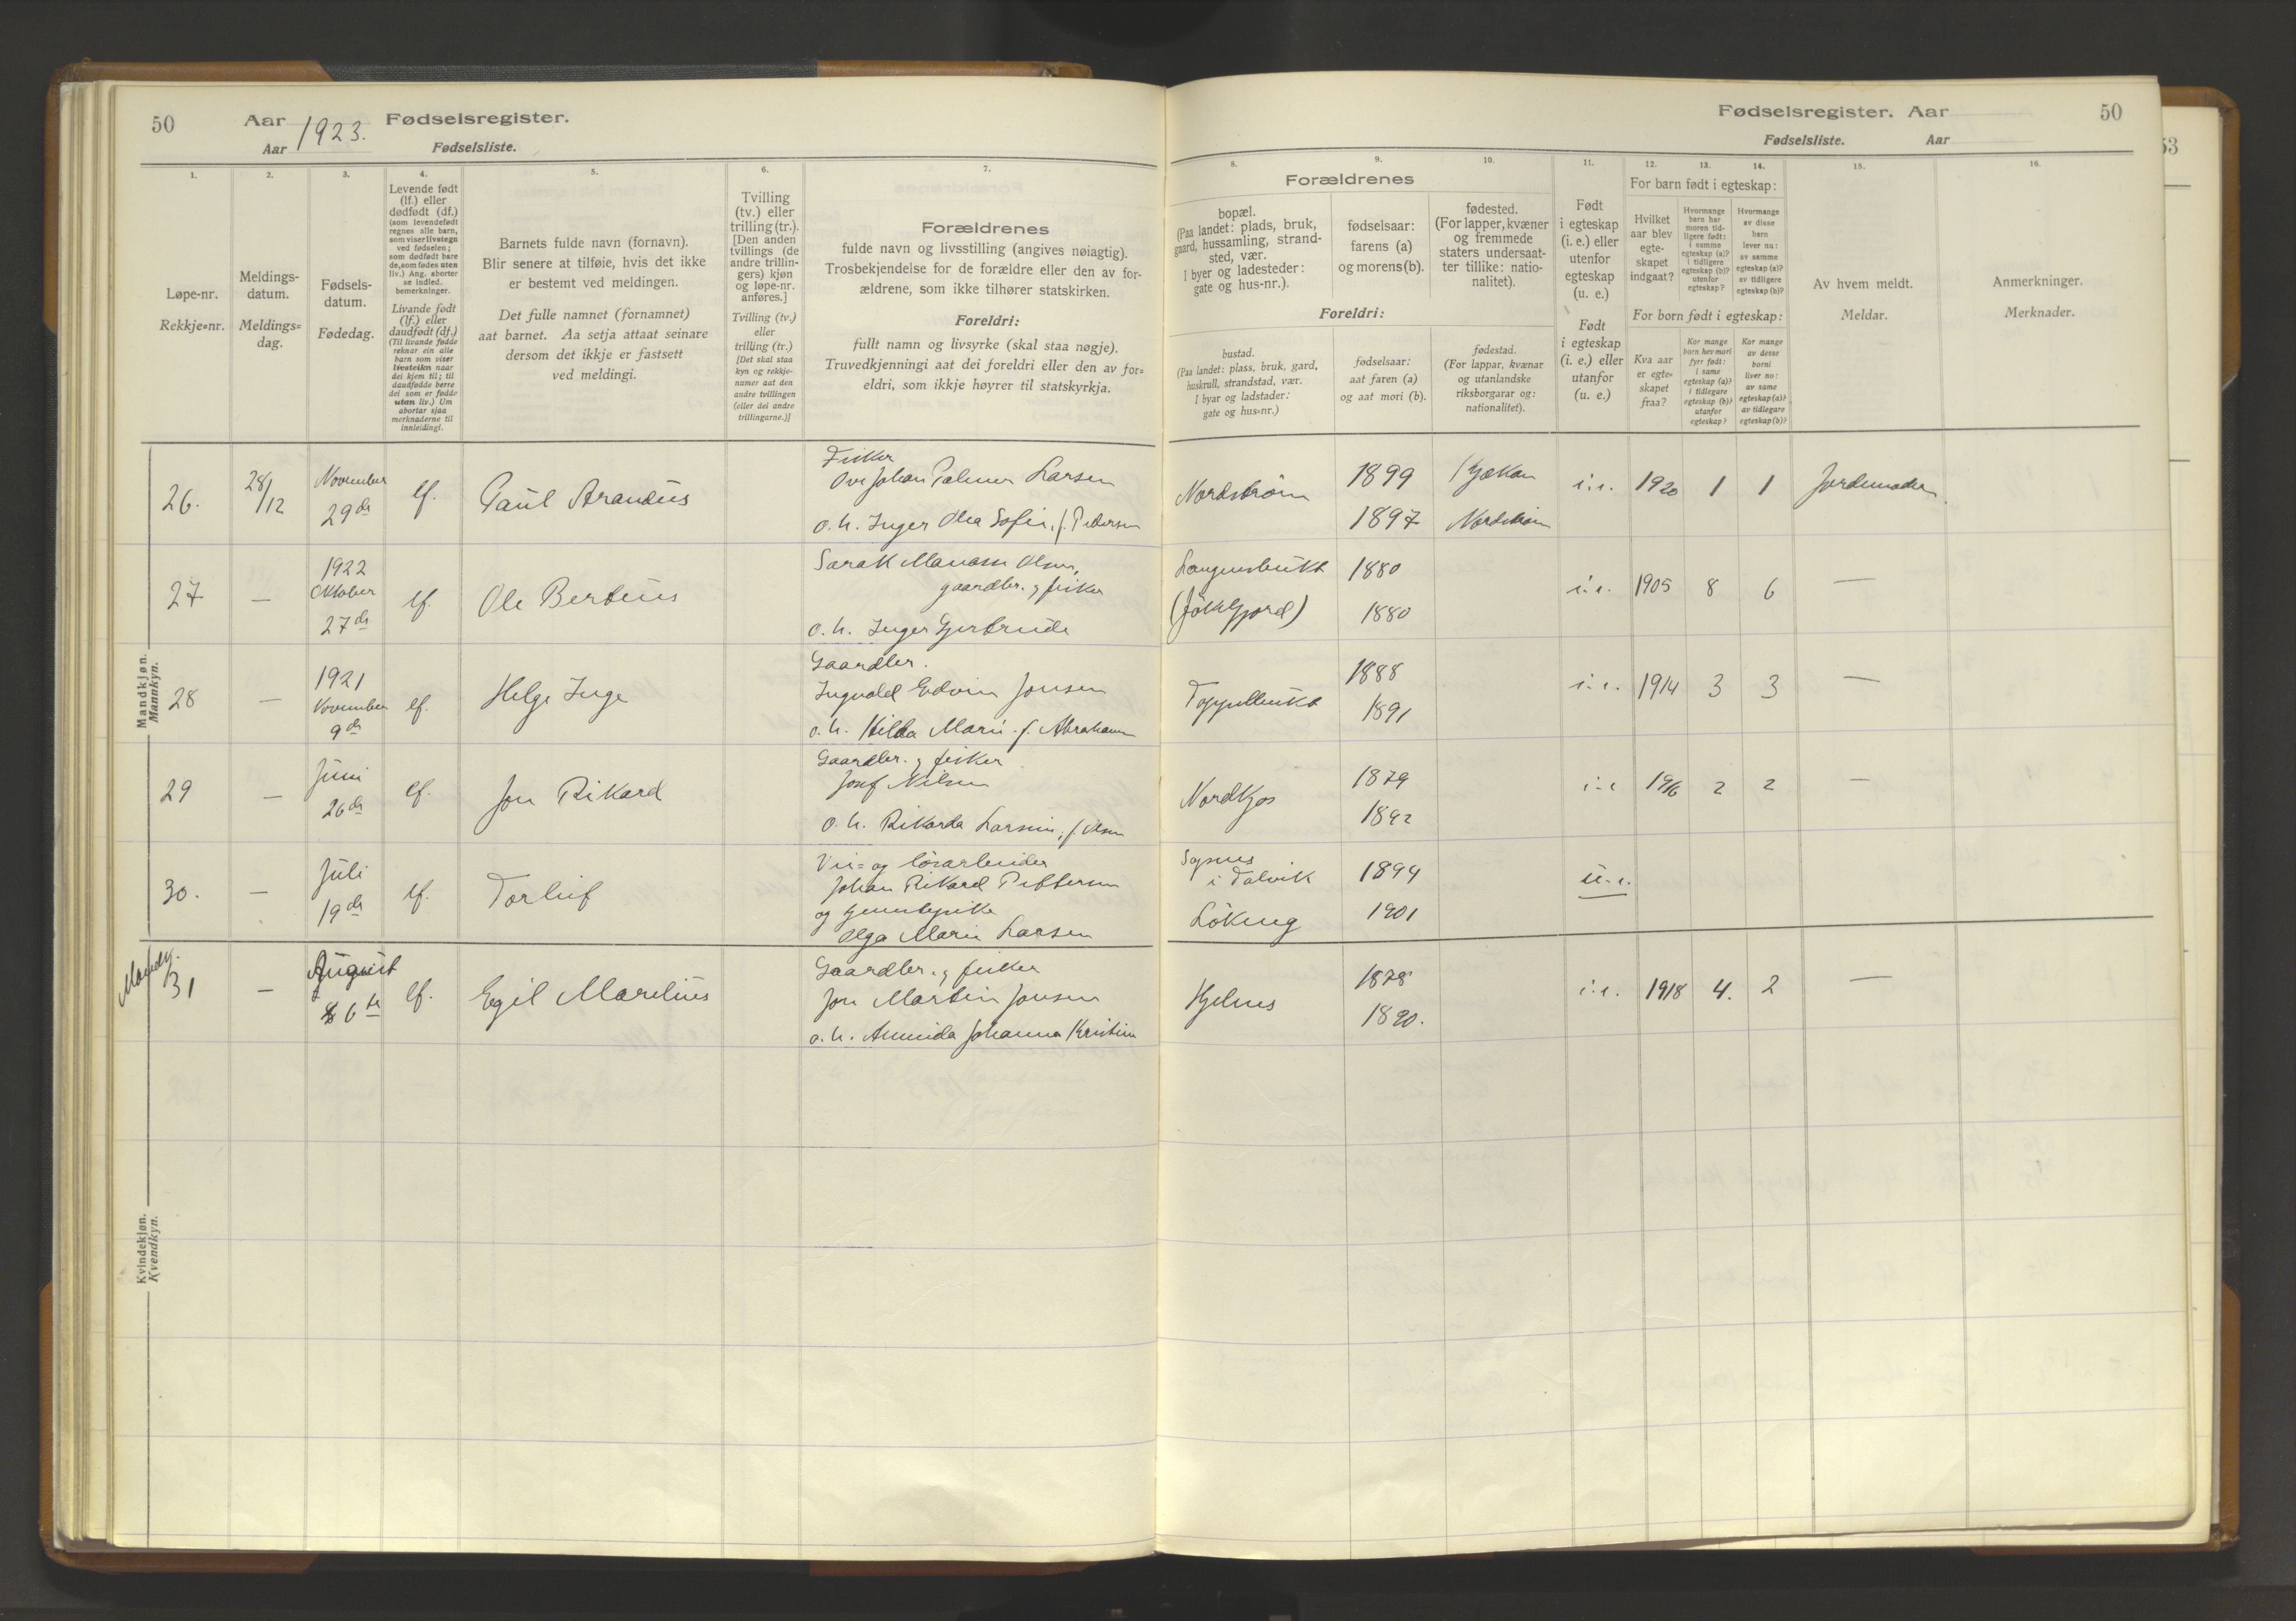 50
Aar 1923. Fødselsregister.
Aar Fødselsliste.
Fødselsregister. Aar 50
Fødselsliste. Aar
53
1.
2.
3.
4.
5.
6.
7.
Løpe-nr.
Rekkje=nr.
Meldings-
datum.
Meldings=
dag.
Fødsels-
datum.
Fødedag.
Levende født
(lf.) eller
dødfødt (df.)
(som levendefødt
regnes alle barn,
som viser livstegn
ved fødselen;
som dødfødt bare
de, som fødes uten
liv.) Ang. aborter
se indled.
bemerkninger.
Livande født
(lf.) eller
daudfødt (df.)
(Til livande fødde
reknar ein alle
barn som viser
livsteikn naar
dei kjem til; til
daudfødde berre
dei som er fødde
utan liv.) Um
abortar sjaa
merknaderne til
innleidingi.
Barnets fulde navn (fornavn).
Blir senere at tilføie, hvis det ikke
er bestemt ved meldingen.
Det fulle namnet (fornamnet)
aat barnet. Aa setja attaat seinare
dersom det ikkje er fastsett
ved meldingi.
Tvilling
(tv.) eller
trilling (tr.).
[Den anden
tvillings (de
andre trillin-
gers) kjøn
og løpe-nr.
anføres.]
Tvilling (tv.)
eller
trilling (tr.)
[Det skal staa
kyn og rekkje-
numer aat den
andre tvillingen
(eller dei andre
trillingarne.)]
Forældrenes
fulde navn og livsstilling (angives nøiagtig).
Trosbekjendelse for de forældre eller den av for-
ældrene, som ikke tilhører statskirken.
Foreldri:
fullt namn og livsyrke (skal staa nøgje).
Truvedkjenningi aat dei foreldri eller den av for=
eldri, som ikkje høyrer til statskyrkja.
8.
9.
10.
11.
12.
13.
14.
15.
16.
Forældrenes
bopæl.
(Paa landet: plads, bruk,
gaard, hussamling, strand-
sted, vær.
I byer og ladesteder:
gate og hus-nr.).
fødselsaar:
farens (a)
og morens (b).
fødested.
(For lapper, kvæner
og fremmede
staters undersaat-
ter tillike: natio-
nalitet).
Foreldri:
bustad.
(Paa landet: plass, bruk, gard,
huskrull, strandstad, vær.
I byar og ladstader:
gate og hus=nr.)
fødselsaar:
aat faren (a)
og aat mori (b).
fødestad.
(For lappar, kvænar
og utanlandske
riksborgarar og:
nationalitet).
Født
i egteskap
(i. e.) eller
utenfor
egteskap
(u. e.)
Født
i egteskap
(i. e.) eller
utanfor
(u. e.)
For barn født i egteskap:
Hvilket
aar blev
egte-
skapet
indgaat?
Hvormange
barn har
moren tid-
ligere født:
i samme
egteskap (a)?
i tidligere
egteskap (b)?
utenfor
egteskap?
Hvormange
av disse
barn
lever nu:
av samme
egteskap (a)?
av tidligere
egteskap (b)?
For born født i egteskap:
Kva aar
er egte-
skapet
fraa?
Kor mange
born hev mori
fyrr født:
i same
egteskap (a)?
i tidlegare
egteskap (b)?
utanfor
egteskap?
Kor mange
av desse
borni
liver no:
av same
egteskap (a)?
av tidlegare
egteskap (b)?
Av hvem meldt.
Meldar.
Anmerkninger.
Merknader.
Mandkjøn.
Mannkyn.
26. 28/12 November 29de lf. Paul Arandus
Fisker
Ove Johan Palmer Larsen
o. h. Inger Olea Sofie, f. Pedersen
Nordstrøm 1899 1897 Kjækan Nordstrøm i. e. 1920 1 1 Jordemoder.
27 — 1922 Oktober 27de lf. Ole Berteus
Sarak Manasse Olsen,
gaardbr. og fisker
o. h. Inger Gjertrude
Langnesbukt (Jøkelfjord) 1880 1880 i. e. 1905 8 6 —
28 — 1921 November 9de lf. Helge Inge
Gaardbr.
Ingvald Edvin Jensen
o. h. Hilda Marie f. Abrahamsen
Toppelbukt 1888 1891 i. e. 1914 3 3 —
29 — Juni 26de lf. Jon Rikard
Gaardbr. og fisker
Josef Nilsen
o. h. Rikarda Larsine, f. Olsen
Nordkjos 1879 1892 i. e. 1916 2 2 —
30. — Juli 19de lf. Torleif
Vei= og løsarbeider
Johan Rikard Pettersen
og tjenestepike
Olga Marie Larsen
Sopnes i Talvik Løkeng 1894 1901 u. e.
Mandkj.
31 — August 6te lf. Egil Marelius
Gaardbr. og fisker
Jon Martin Jensen
o. h. Amunda Johanna Kristine
Kjelnes 1878 1890. i. e. 1918 4. 2 —
Kvindekjøn.
Kvendkyn.